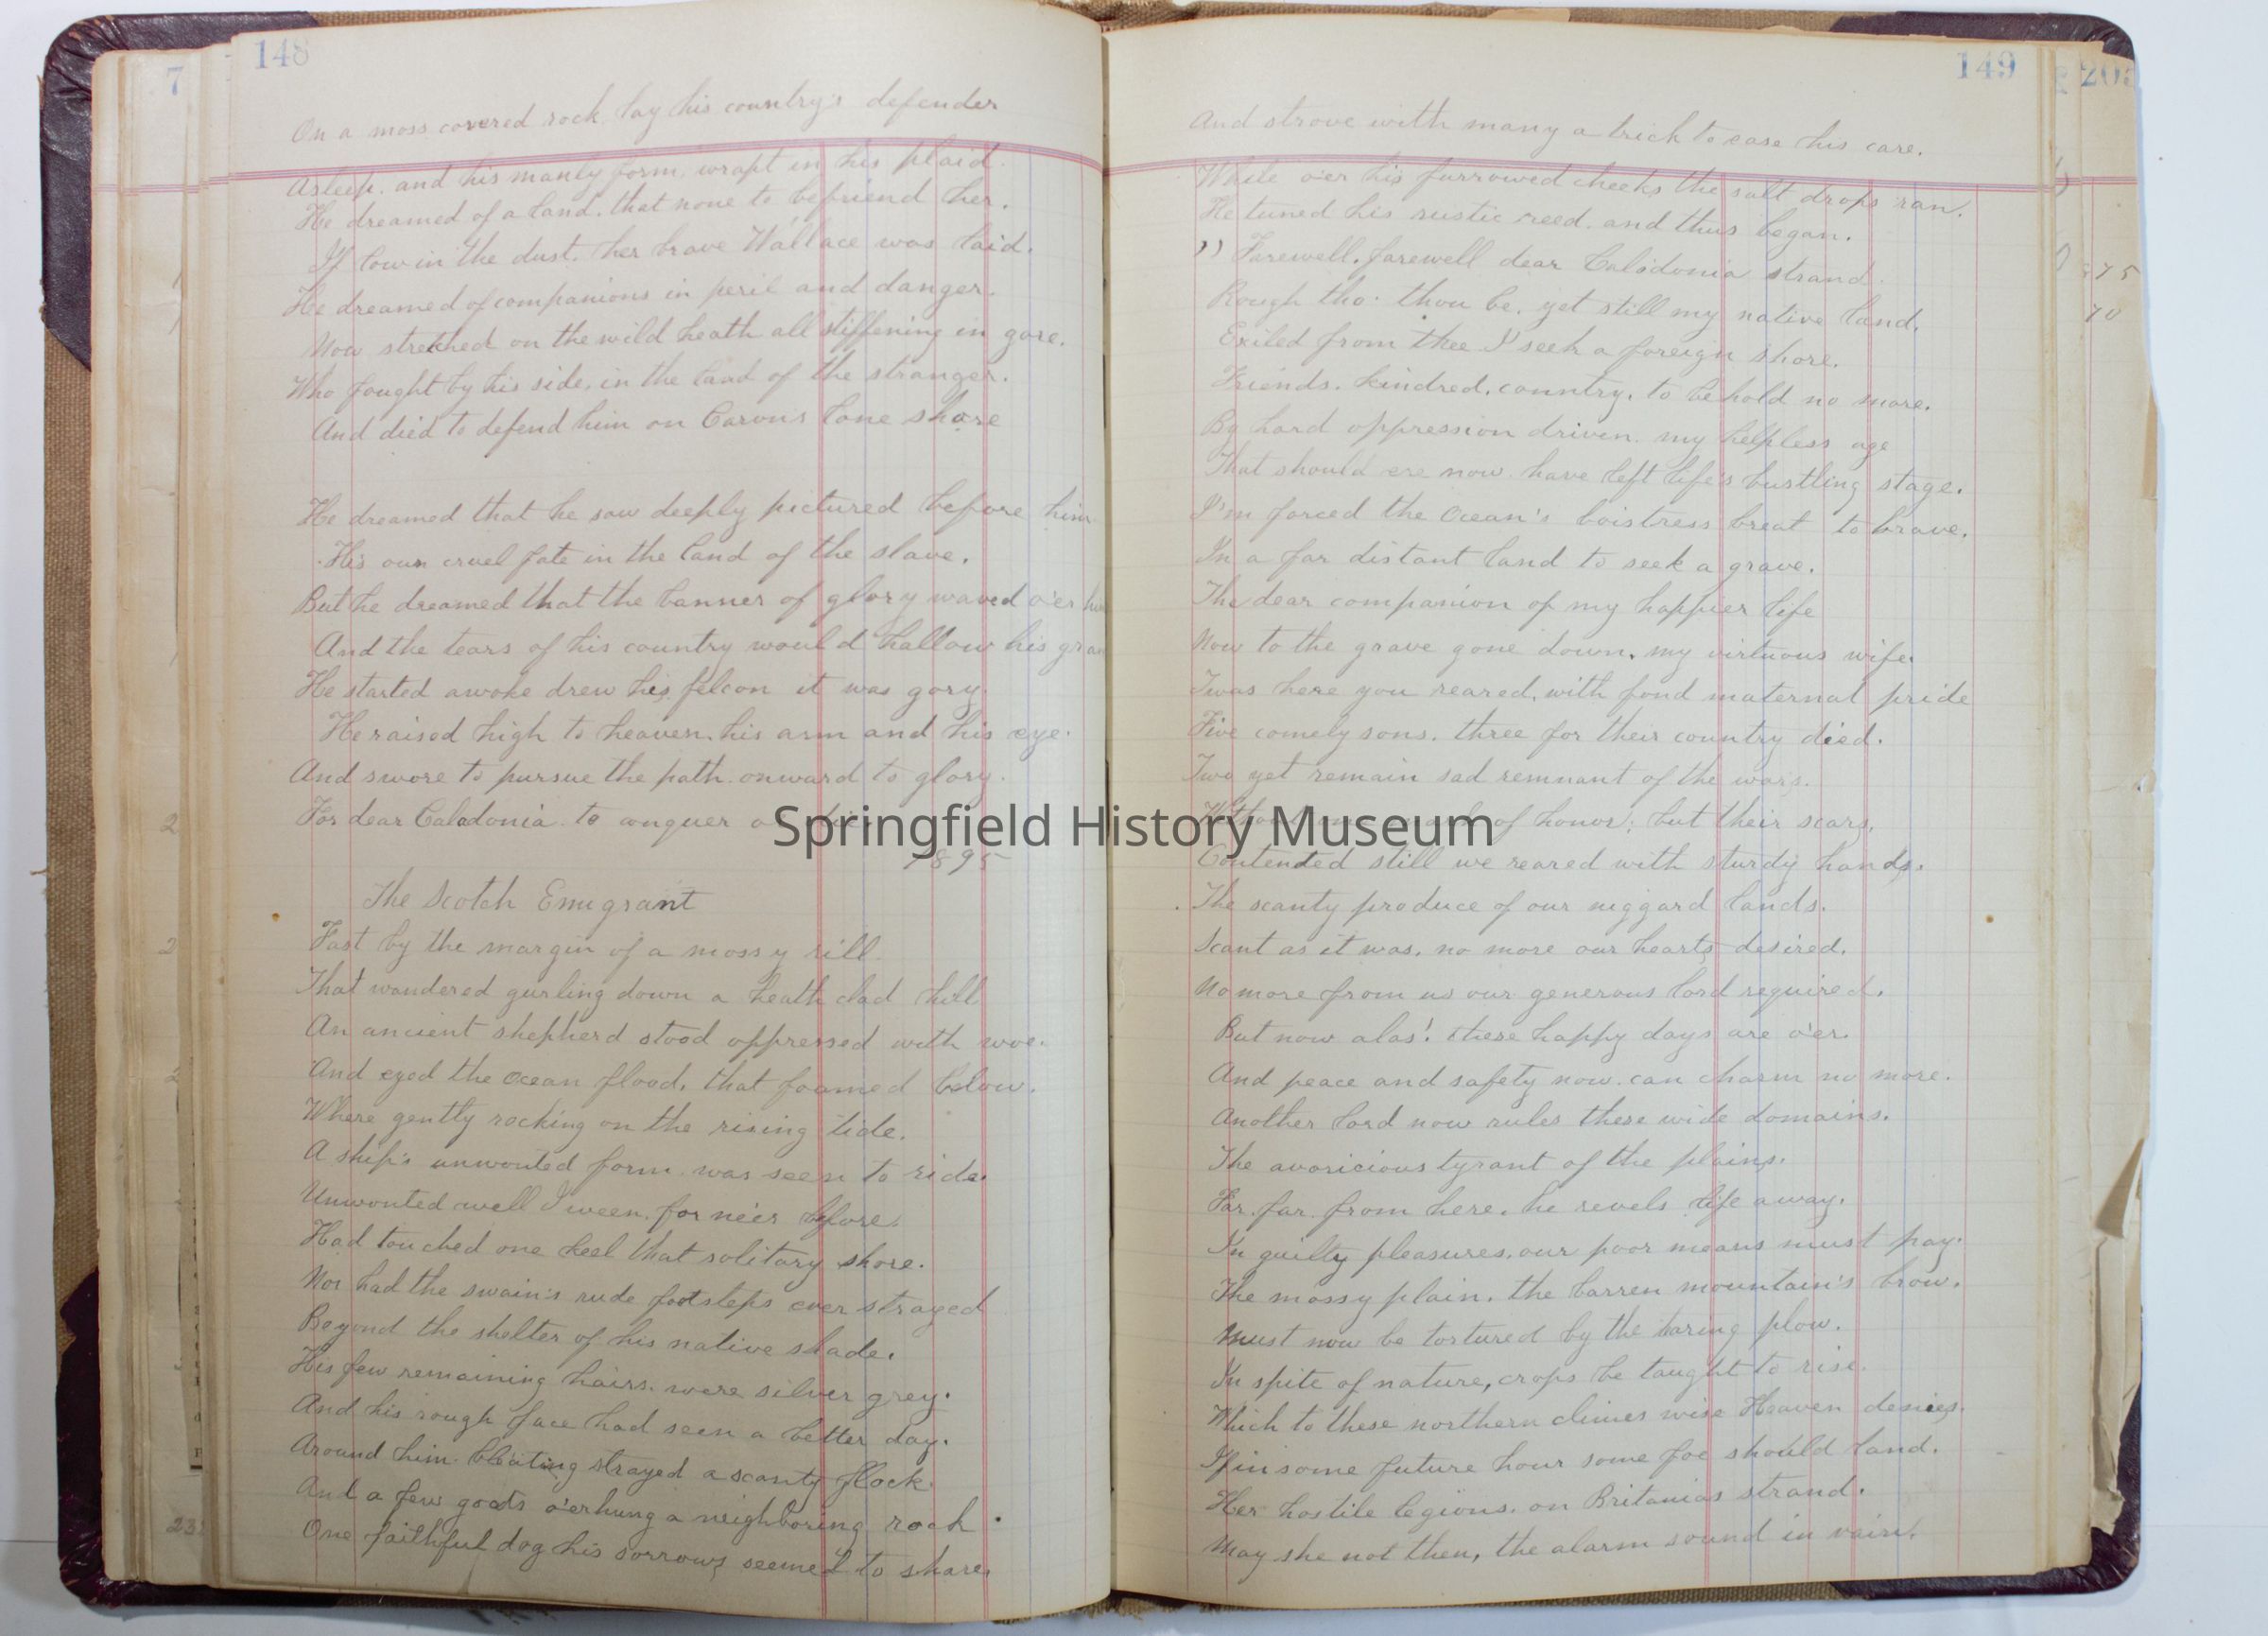 148
On a moss covered rock, lay his country's defender
Asleep. and his manly form. wrapt in his plaid.
He dreamed of a land. that none to befriend her.
If low in the dust. her brave Wallace was laid.
He dreamed of companions in peril and danger.
Now stretched on the wild heath all stiffening in gore.
Who fought by his side. in the land of the stranger.
And died to defend him on Carons lone shore
He dreamed that he saw deeply pictured before him
His own cruel fate in the land of the slave.
But he dreamed that the banner of glory waved o'er him
And the tears of his country would hallow his
He started awoke drew his felcon it was gory.
He raised high to heaven. his arm and his eye.
And swore to pursue the path. onward to glory.
For dear Caladonia. to conquer
1895
The Scotch Emigrant
Fast by the margin of a mossy rill.
That wandered gurling down a heath clad hill
An ancient shepherd stood oppressed with woe.
And eyed the ocean flood. that foamed below.
Where gently rocking on the rising tide.
A ship's unwonted form. was seen to ride.
Unwonted well I ween. for ne'er before.
Had touched one keel that solitary shore.
Nor had the swain's rude footsteps ever strayed
Beyond the shelter of his native shade.
His few remaining hairs. were silver grey.
And his rough face had seen a better day.
Around him. bleating strayed a scanty flock.
And a few goats o'erhung a neighboring rock.
One faithful dog his sorrows seemed to share.
149
And strove with many a trick to ease his care.
While o'er his furrowed cheeks the salt drops ran.
He tuned his rustic reed. and thus began.
" Farewell. farewell dear Calidonia strand.
Rough tho. thou be. yet still my native land.
Exiled from thee I seek a foreign shore.
Friends. kindred. country. to behold no more.
By hard oppression driven. my helpless age
That should ere now. have left life's bustling stage.
I'm forced the Ocean's boistress to brave.
In a far distant land to seek a grave.
The dear companion of my happier life
Now to the grave gone down. my virtuous wife.
Twas here you reared. with fond maternal pride
Five comely sons. three for their country died.
Two yet remain sad remnant of the wars.
of honor; but their scars.
Contended still we reared with sturdy hands.
The scanty produce of our niggard lands.
Scant as it was. no more our hearts desired.
No more from us our generous lord required.
But now alas! these happy days are o'er.
And peace and safety now. can charm no more.
Another lord now rules these wide domains.
The avoricious tyrant of the plains.
Far. far. from here. he revels life away.
In guilty pleasures. our poor means must pay.
The mossy plain. the barren mountain's brow.
Must now be tortured by the taring plow.
In spite of nature, crops be taught to rise.
Which to these northern climes wise Heaven denies.
If in some future hour some foe should land.
Her hostile legions. on Britanias strand.
May she not then, the alarm sound in vain.
Springfield History Museum